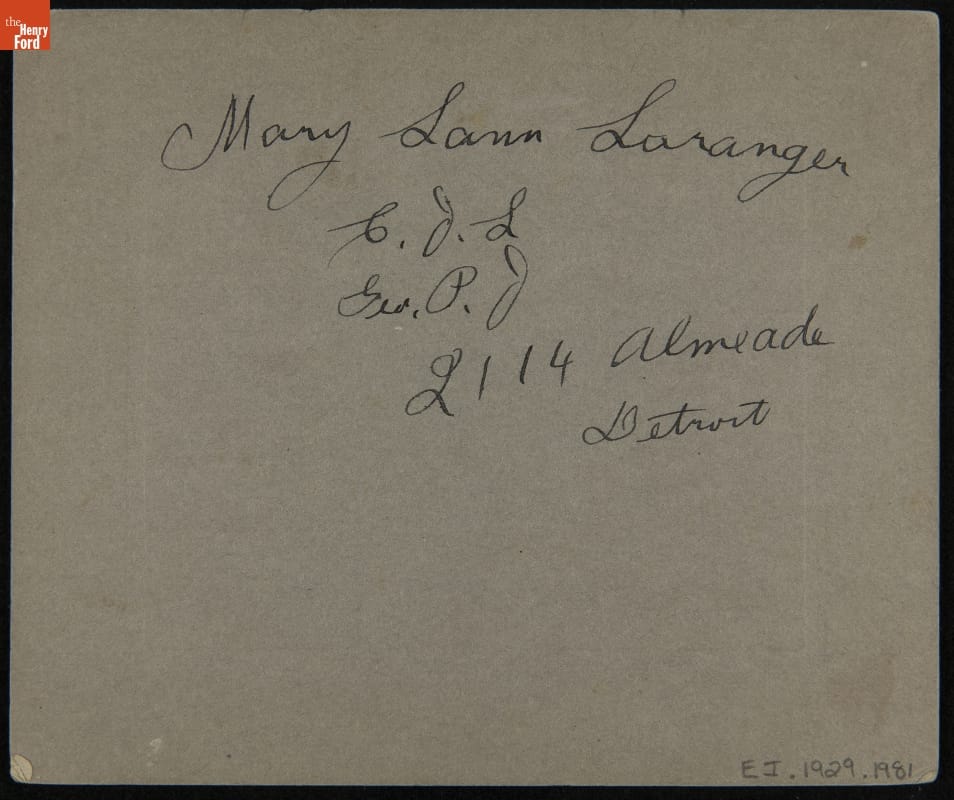 the
Henry
Ford
Mary Lann Loranger
C. J. L
Geo. P. J
2114 Almeade
Detroit
EI.1929.1981